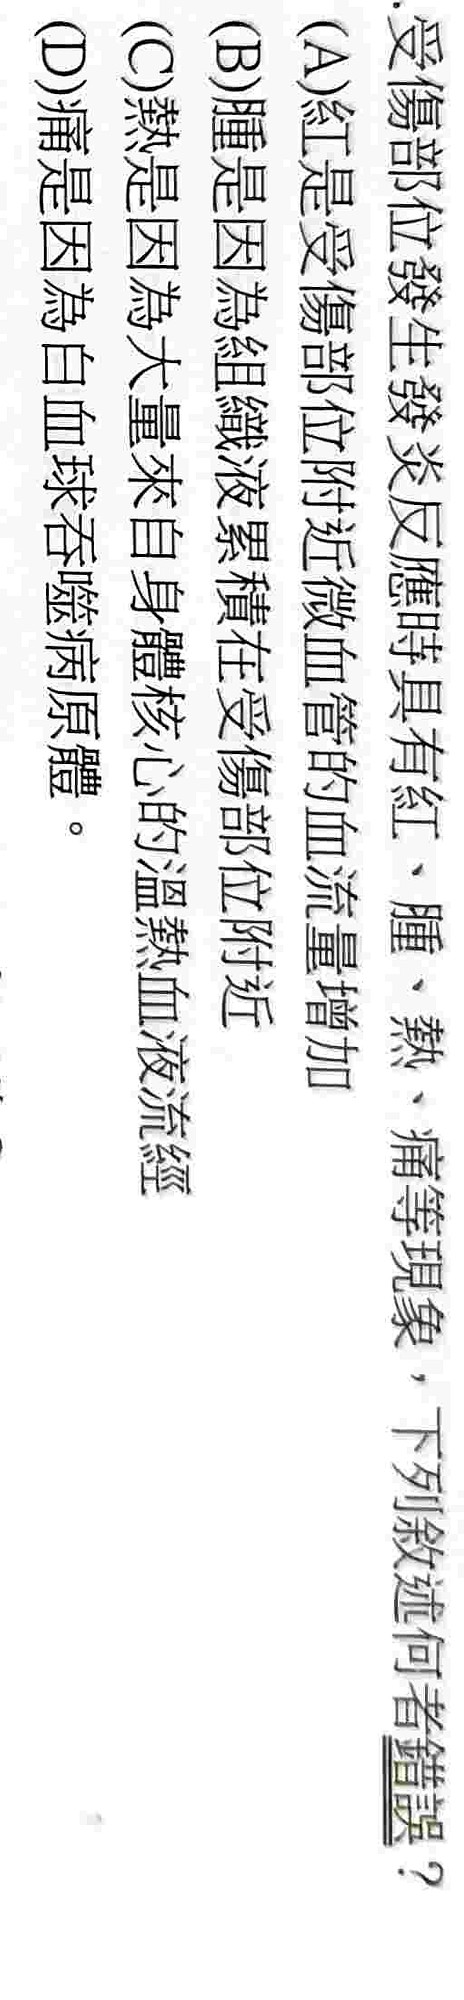 .受傷部位發生發炎反應時具有紅、腫、熱、痛等現象，下列敘述何者錯誤？
(A)紅是受傷部位附近微血管的血流量增加
(B)腫是因為組織液累積在受傷部位附近
(C)熱是因為大量來自身體核心的溫熱血液流經
(D)痛是因為白血球吞噬病原體。